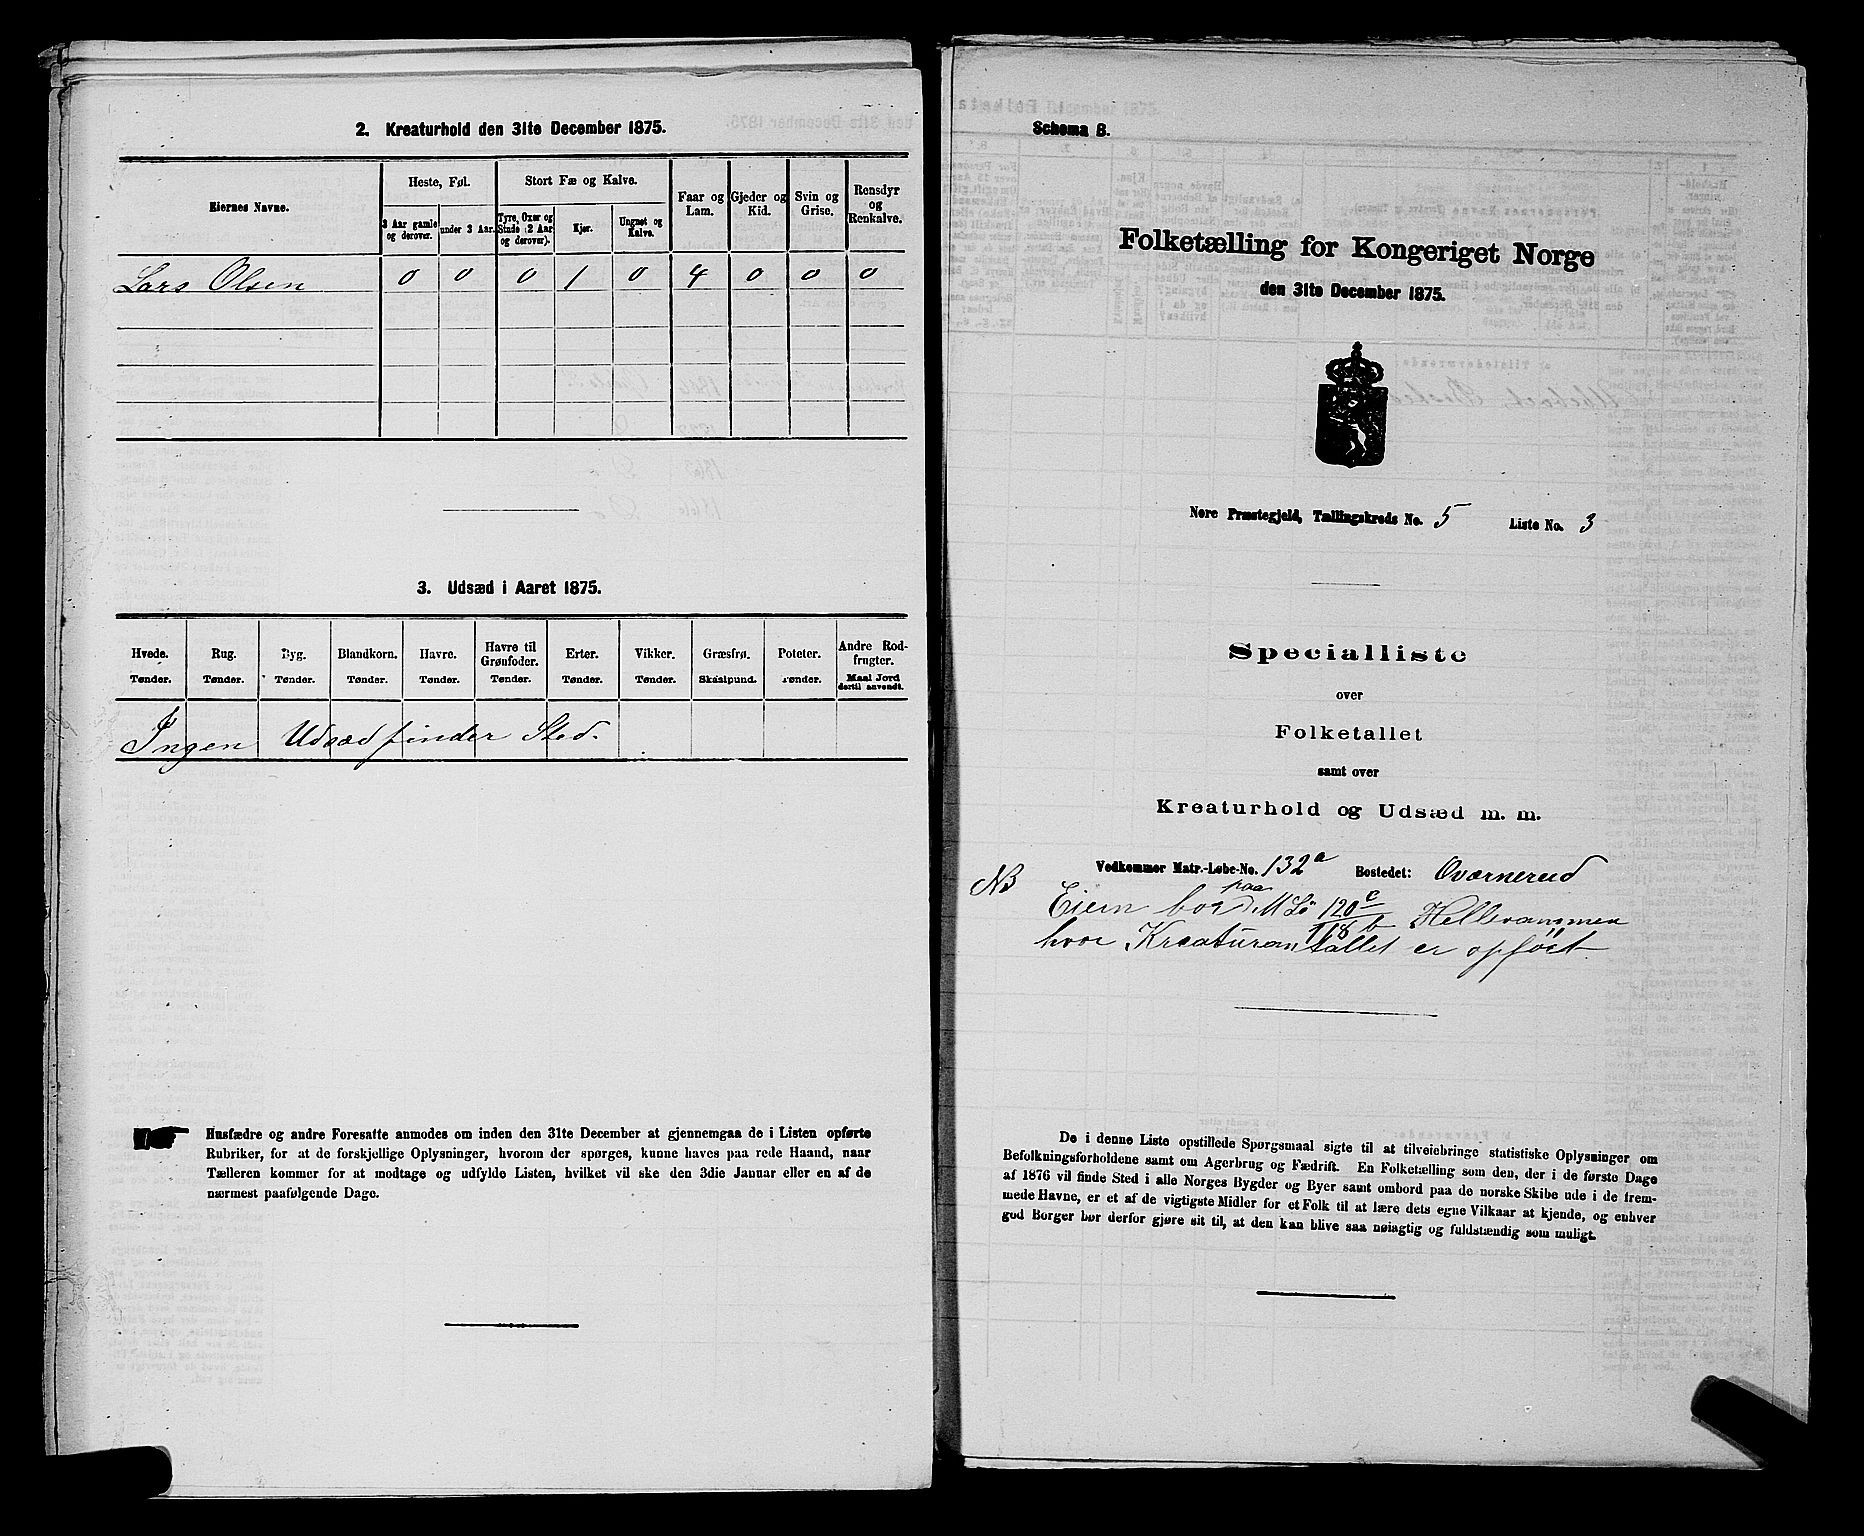 2. Kreaturhold den 31te December 1875.
Eiernes Navne.
Heste, Føl.
Stort Fæ og Kalve.
Faar og Lam.
Gjeder og Kid.
Svin og Grise.
Rensdyr og Renkalve.
3 Aar gamle og derover.
under 3 Aar.
Tyre, Oxer og Stude (2 Aar og derover).
Kjør.
Ungnøt og Kalve.
Lars Olsen 0 0 0 1 0 4 0 0 0
3. Udsæd i Aaret 1875.
Hvede. Rug. Byg. Blandkorn. Havre. Havre til Grønfoder. Erter. Vikker. Græsfrø. Poteter. Andre Rodfrugter.
Tønder. Tønder. Tønder. Tønder. Tønder. Tønder. Tønder. Tønder. Skaalpund. Tønder. Maal Jord dertil anvendt.
Ingen Udsæd finder Sted.
Husfædre og andre Foresatte anmodes om inden den 31te December at gjennemgaa de i Listen opførte
Rubriker, for at de forskjellige Oplysninger, hvorom der spørges, kunne haves paa rede Haand, naar
Tælleren kommer for at modtage og udfylde Listen, hvilket vil ske den 3die Januar eller en af de
nærmest paafølgende Dage.
Schema B.
Folketælling for Kongeriget Norge
den 31te December 1875.
Nore Præstegjeld, Tællingskreds No. 5 Liste No. 3
Specialliste
over
Folketallet
samt over
Kreaturhold og Udsæd m. m.
Vedkommer Matr.-Løbe-No. 132a Bostedet: Oværnerud
NB
Eiern bor paa M Lö 120c/168b Hellerammen
hvor Kreaturantallet er opført.
De i denne Liste opstillede Spørgsmaal sigte til at tilveiebringe statistiske Oplysninger om
Befolkningsforholdene samt om Agerbrug og Fædrift. En Folketælling som den, der i de første Dage
af 1876 vil finde Sted i alle Norges Bygder og Byer samt ombord paa de norske Skibe ude i de frem-
mede Havne, er et af de vigtigste Midler for et Folk til at lære dets egne Vilkaar at kjende, og enhver
god Borger bør derfor gjøre sit til, at den kan blive saa nøiagtig og fuldstændig som muligt.